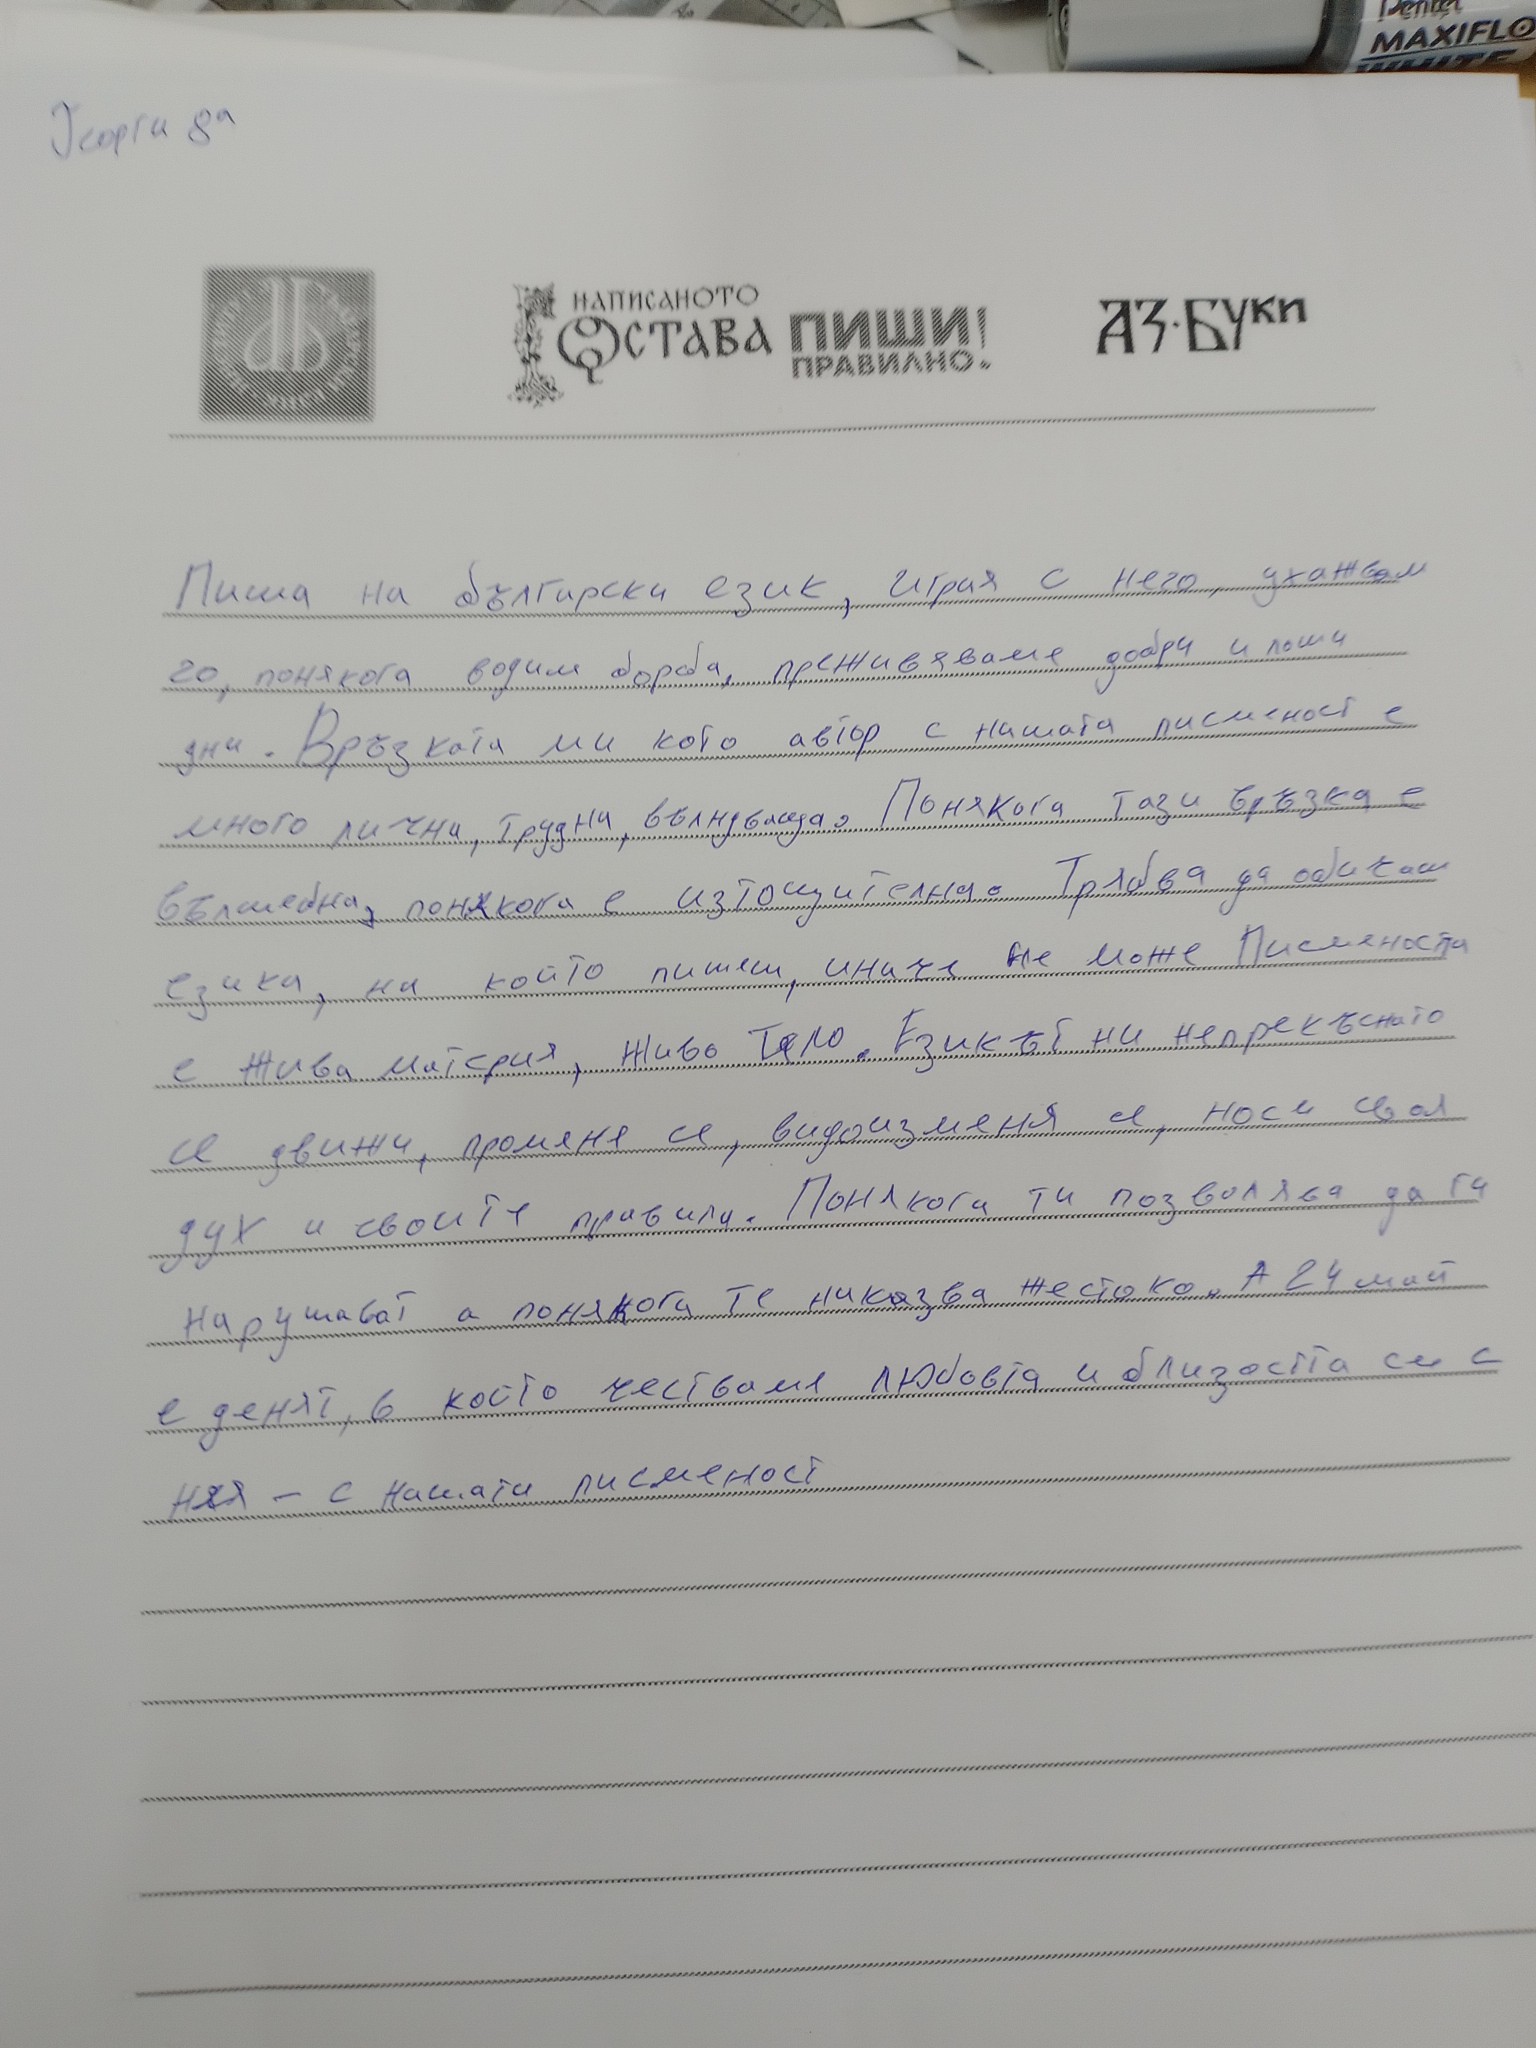 Pentel
MAXIFLO
WHITE
Георги 8а
НАПИСАНОТО
ОСТАВА
ПИШИ!
ПРАВИЛНО.
АЗ·БУКИ
Пиша на български език, играя с него, ухажвам
го, понякога водим борба, преживяваме добри и лоши
дни. Връзката ми кото автор с нашата писменост е
много лична, трудна, вълнуваща. Понякога тази връзка е
вълшебна, понякога е изтощителна. Трябва да обичаш
езика, на който пишеш, иначе не може Писмеността
е жива материя, живо тяло. Езикът ни непрекъснато
се движи, променя се, видоизменя се, носи своя
дух и своите правила. Понякога ти позволява да ги
нарушават а понякога те наказва жестоко. А 24 май
е денят, в който честваме любовта и близостта си с
нея – с нашата писменост